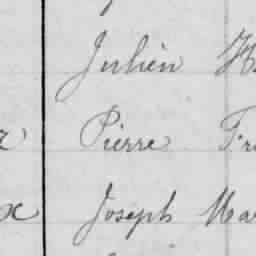 Julien H
r Pierre Fr
x Joseph Mar